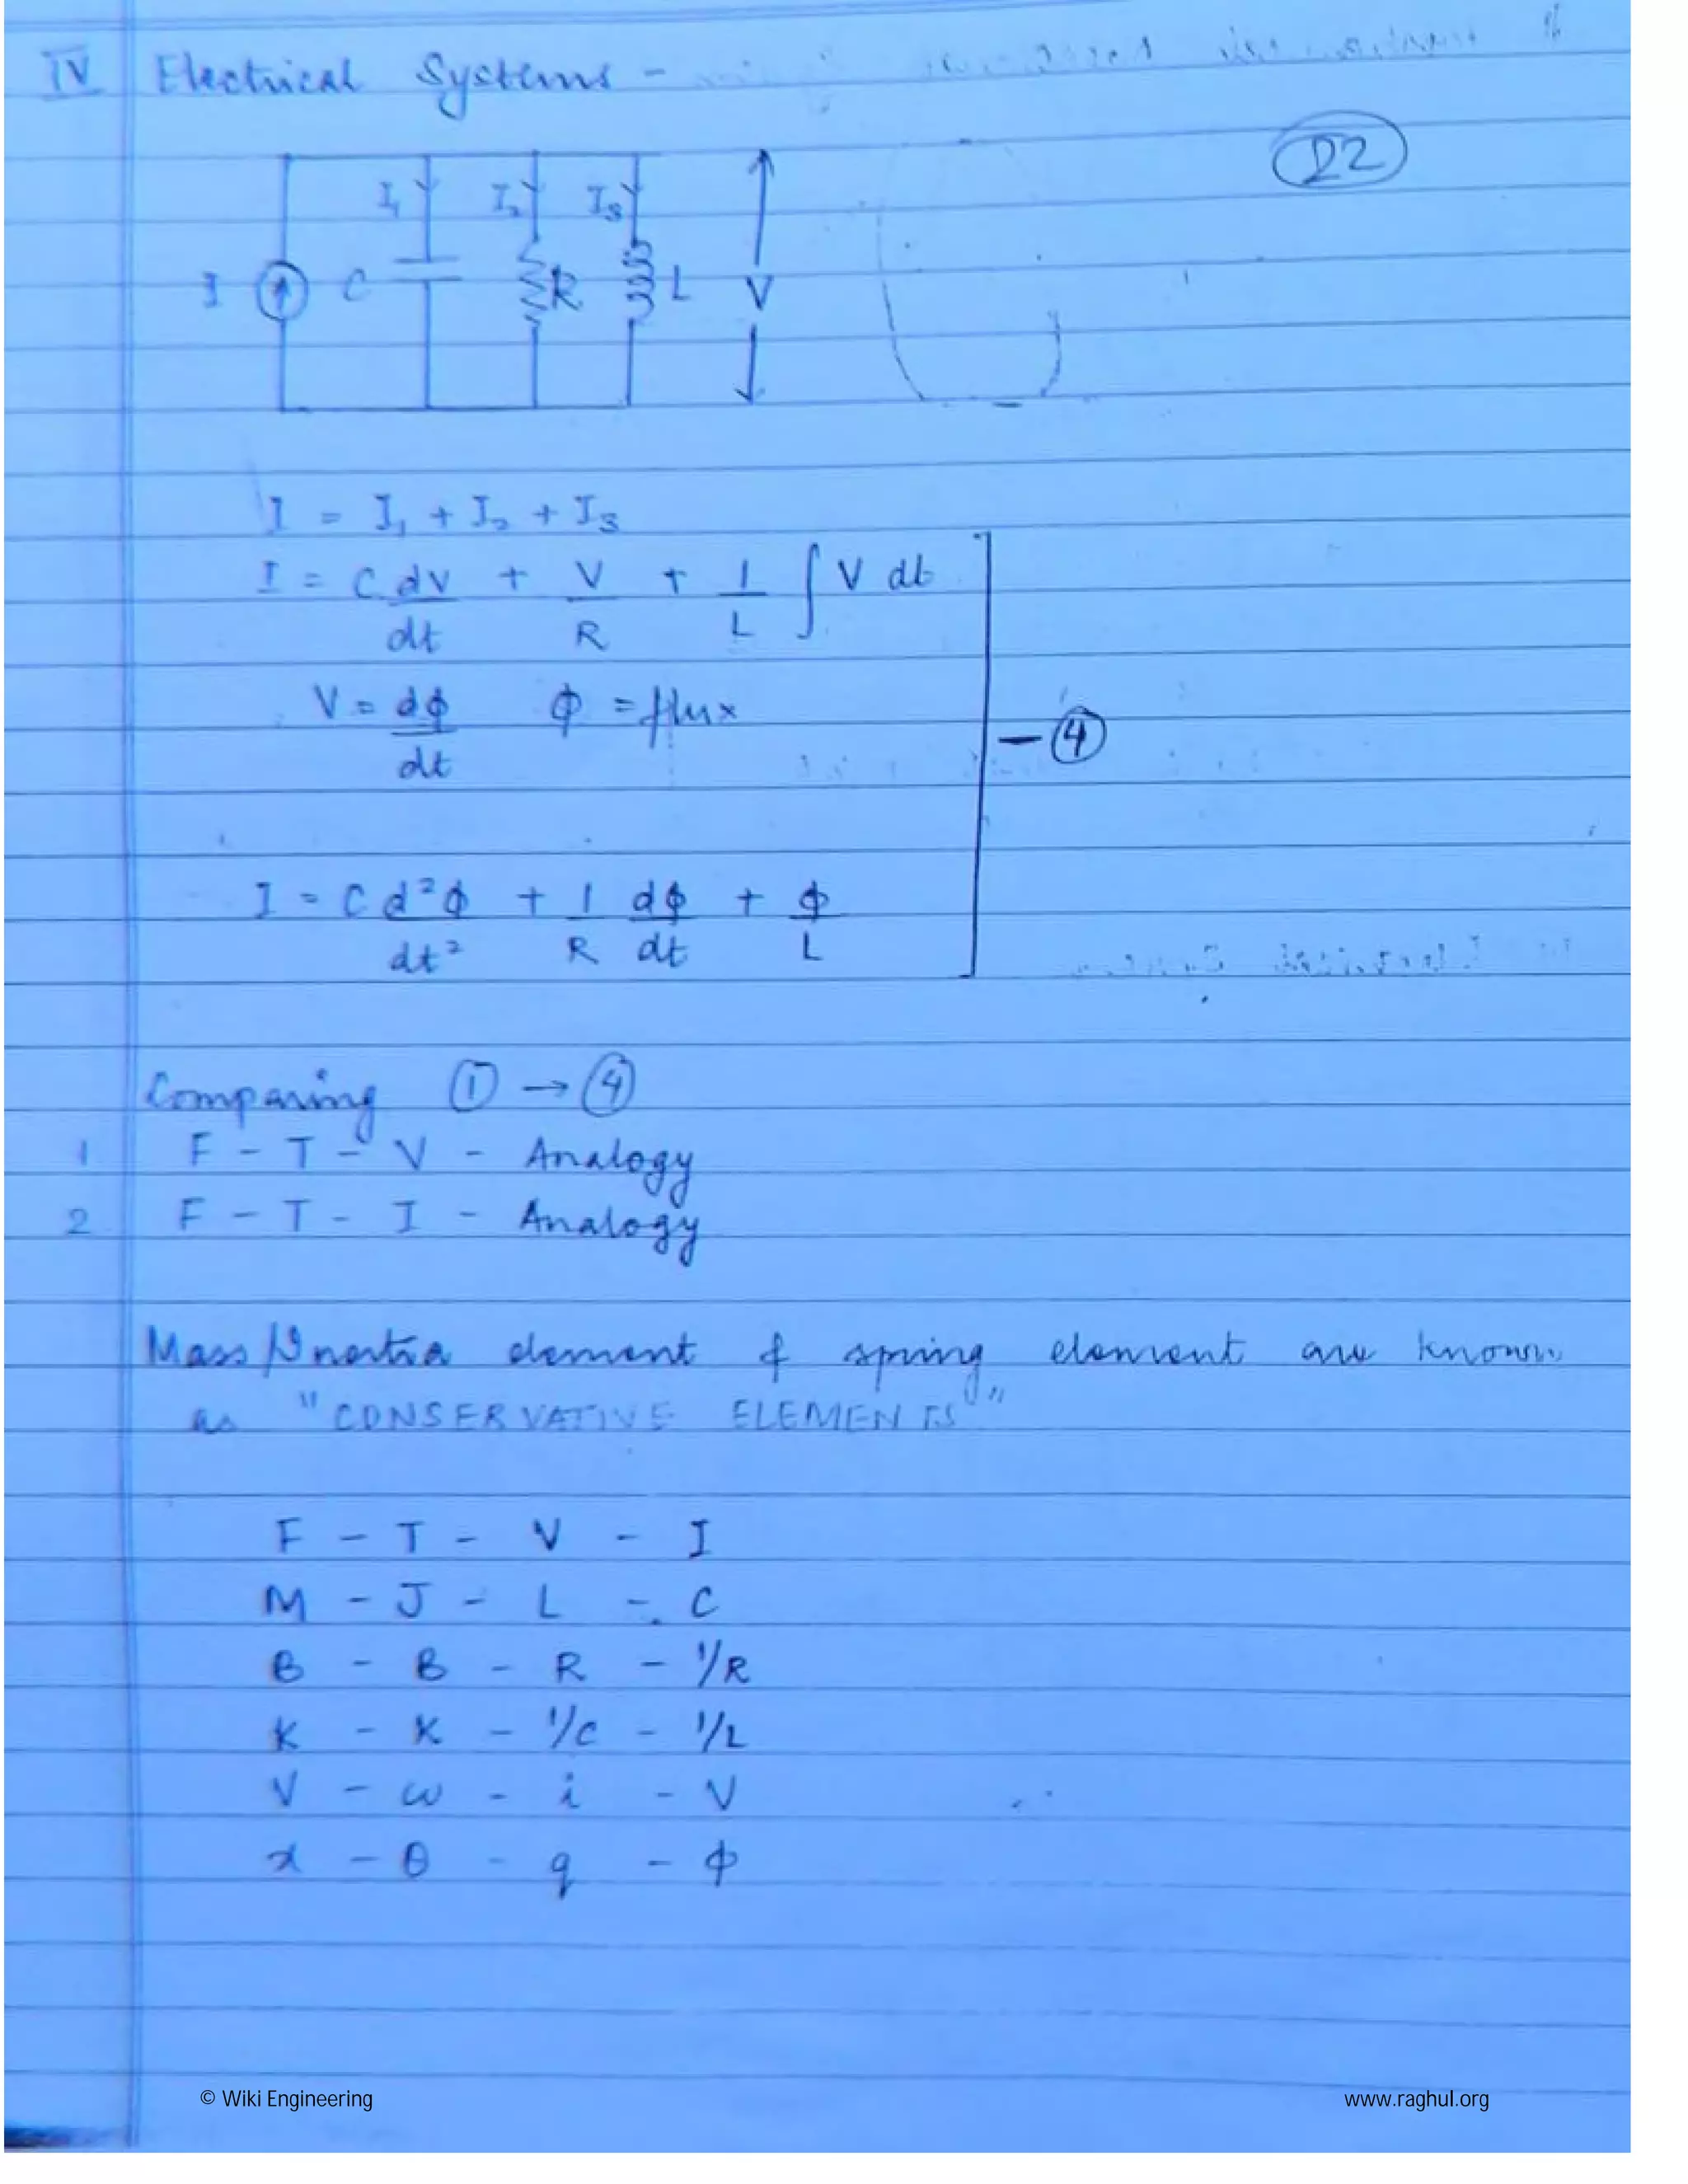 IV Electrical Systems -
22
I₁ I₂ I₃
I C R L V
I = I₁ + I₂ + I₃
I = C dV/dt + V/R + 1/L ∫ V dt
V = dϕ/dt ϕ = flux
- ④
I = C d²ϕ/dt² + 1/R dϕ/dt + ϕ/L
Comparing ① → ④
1 F - T - V - Analogy
2 F - T - I - Analogy
Mass/Inertia element & spring element are known
as "CONSERVATIVE ELEMENTS"
F - T - V - I
M - J - L - C
B - B - R - 1/R
K - K - 1/C - 1/L
V - ω - i - V
x - θ - q - ϕ
© Wiki Engineering www.raghul.org